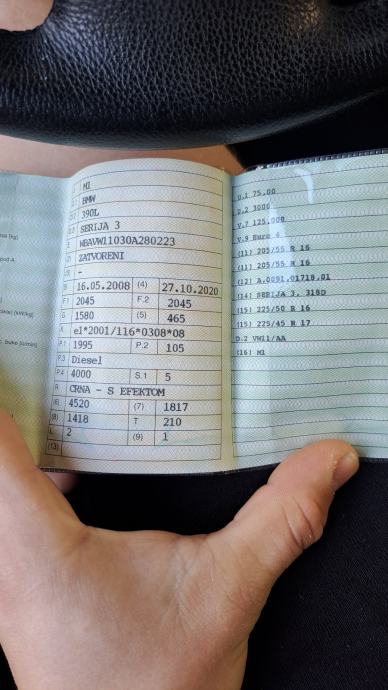 M1
BMW
390L
SERIJA 3
WBAVW11030A280223
ZATVORENI
-
B 16.05.2008 (4) 27.10.2020
F.1 2045 F.2 2045
G 1580 (5) 465
K e1*2001/116*0308*08
P.1 1995 P.2 105
P.3 Diesel
P.4 4000 S.1 5
R CRNA - S EFEKTOM
(6) 4520 (7) 1817
(8) 1418 T 210
L 2 (9) 1
(13)
U.1 75.00
U.2 3000
V.7 125.000
V.9 Euro 4
(11) 205/55 R 16
(11) 205/55 R 16
(12) A.0091.01718.01
(14) SERIJA 3, 318D
(15) 225/50 R 16
(15) 225/45 R 17
D.2 VW11/AA
(16) M1